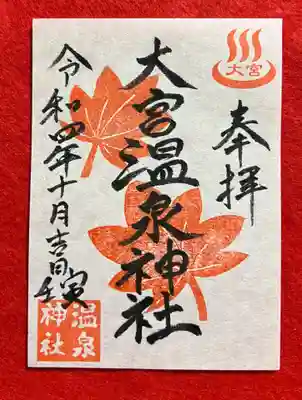 大宮
奉拝
大宮温泉神社
令和四年十月吉日
温泉
神社